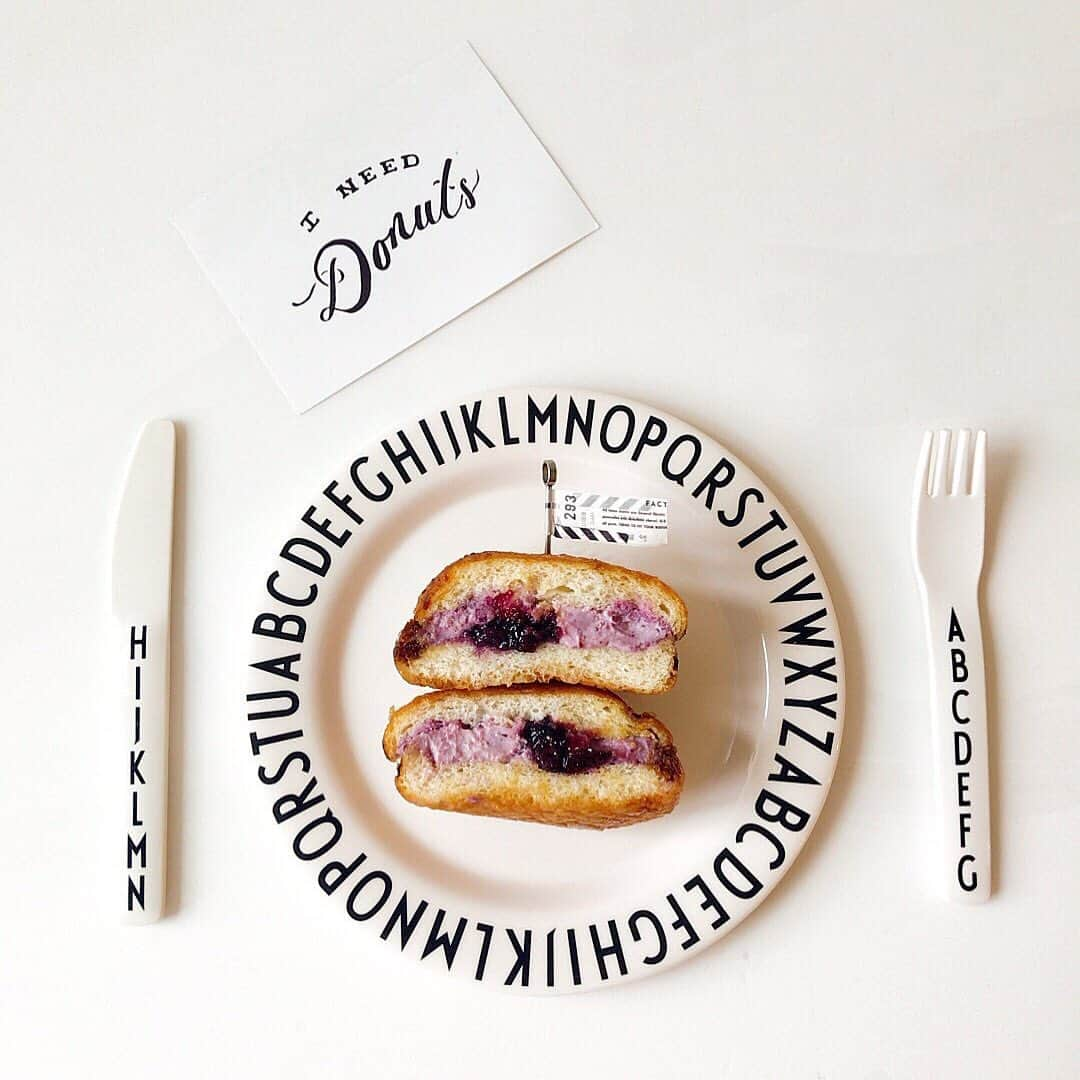 I NEED
Donuts
ABCDEFGHIJKLMNOPQRSTUVWXYZABCDEFGHIJKLMNOPQRSTU
FACT
293
HIJKLMN
ABCDEFG